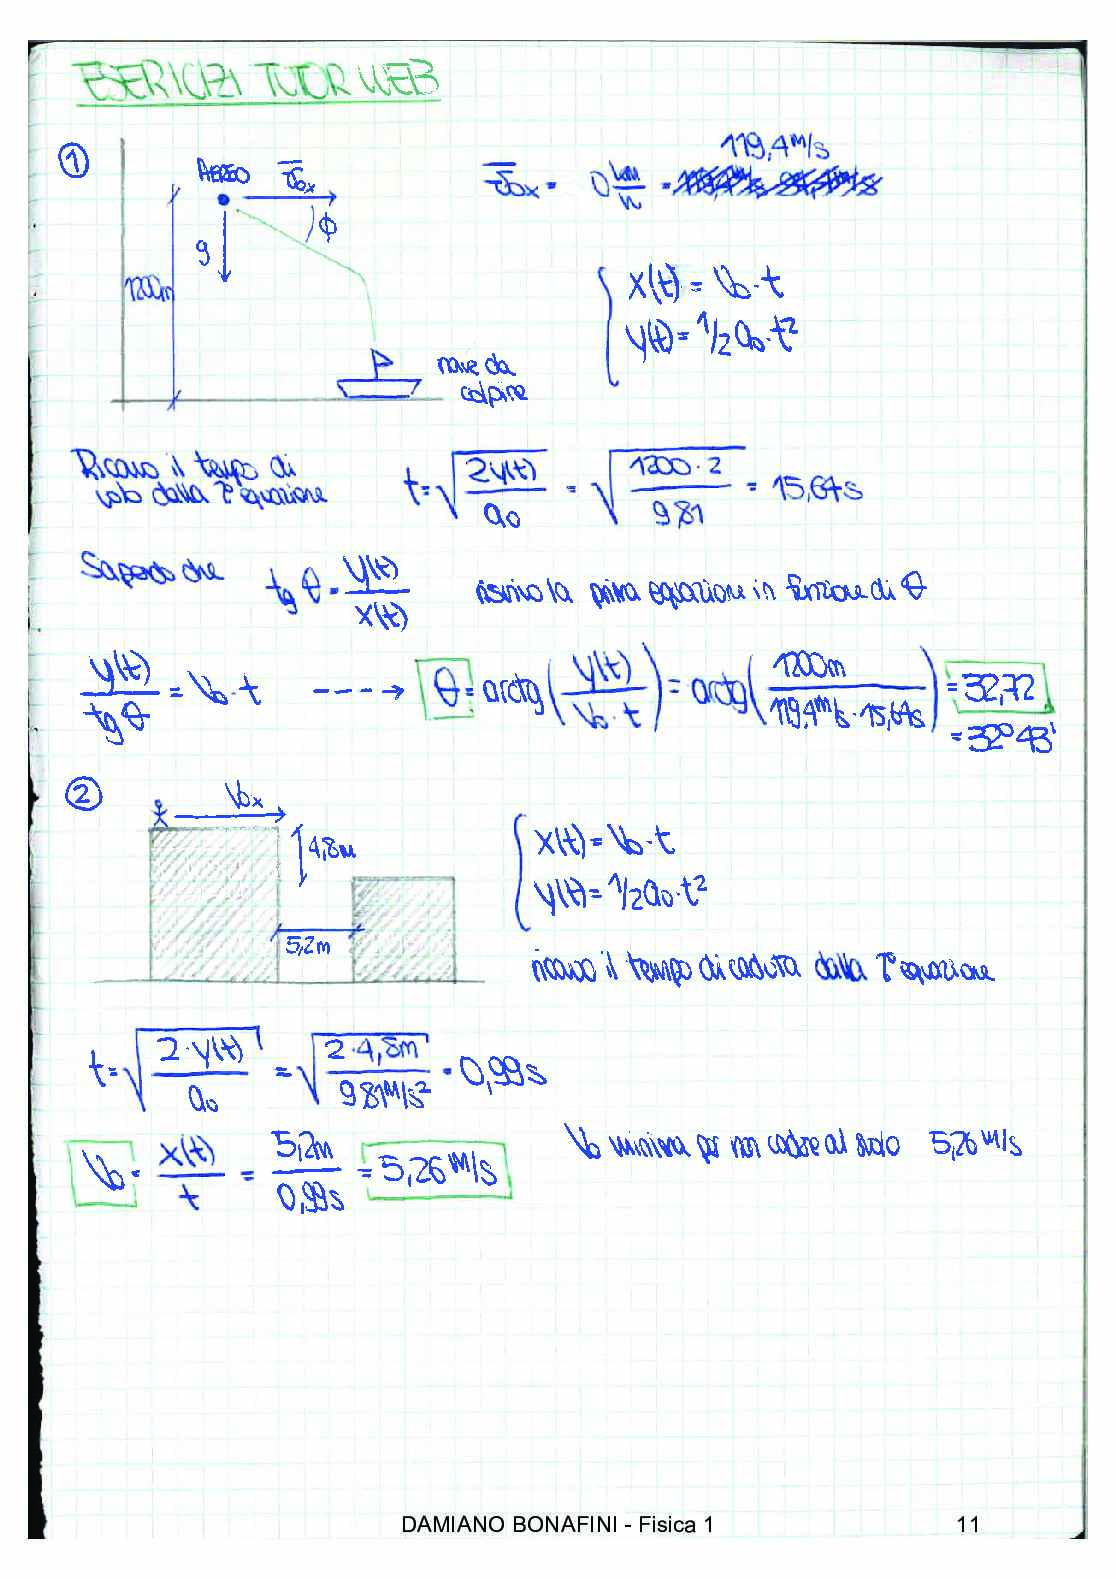 ESERCIZI TUTOR WEB
①
AEREO v̅₀ₓ
ϕ
g
1200m
nave da
colpire
119,4 m/s
v̅₀ₓ = 0 km/h =
x(t) = V₀·t
y(t) = 1/2 a₀·t²
Ricavo il tempo di
volo dalla 2ª equazione
t = √(2y(t)/a₀) = √(1200·2/9,81) = 15,64s
Sapendo che tg θ = y(t)/x(t) riscrivo la prima equazione in funzione di θ
y(t)/tg θ = V₀·t ----→ θ = arctg(y(t)/V₀·t) = arctg(1200m/119,4m/s·15,64s) = 32,72
= 32°43'
②
V₀ₓ
4,8m
5,2m
x(t) = V₀·t
y(t) = 1/2 a₀·t²
ricavo il tempo di caduta dalla 2ª equazione
t = √(2·y(t)/a₀) = √(2·4,8m/9,81m/s²) = 0,99s
V₀ = x(t)/t = 5,2m/0,99s = 5,26 m/s
V₀ minima per non cadere al suolo 5,26 m/s
DAMIANO BONAFINI - Fisica 1
11